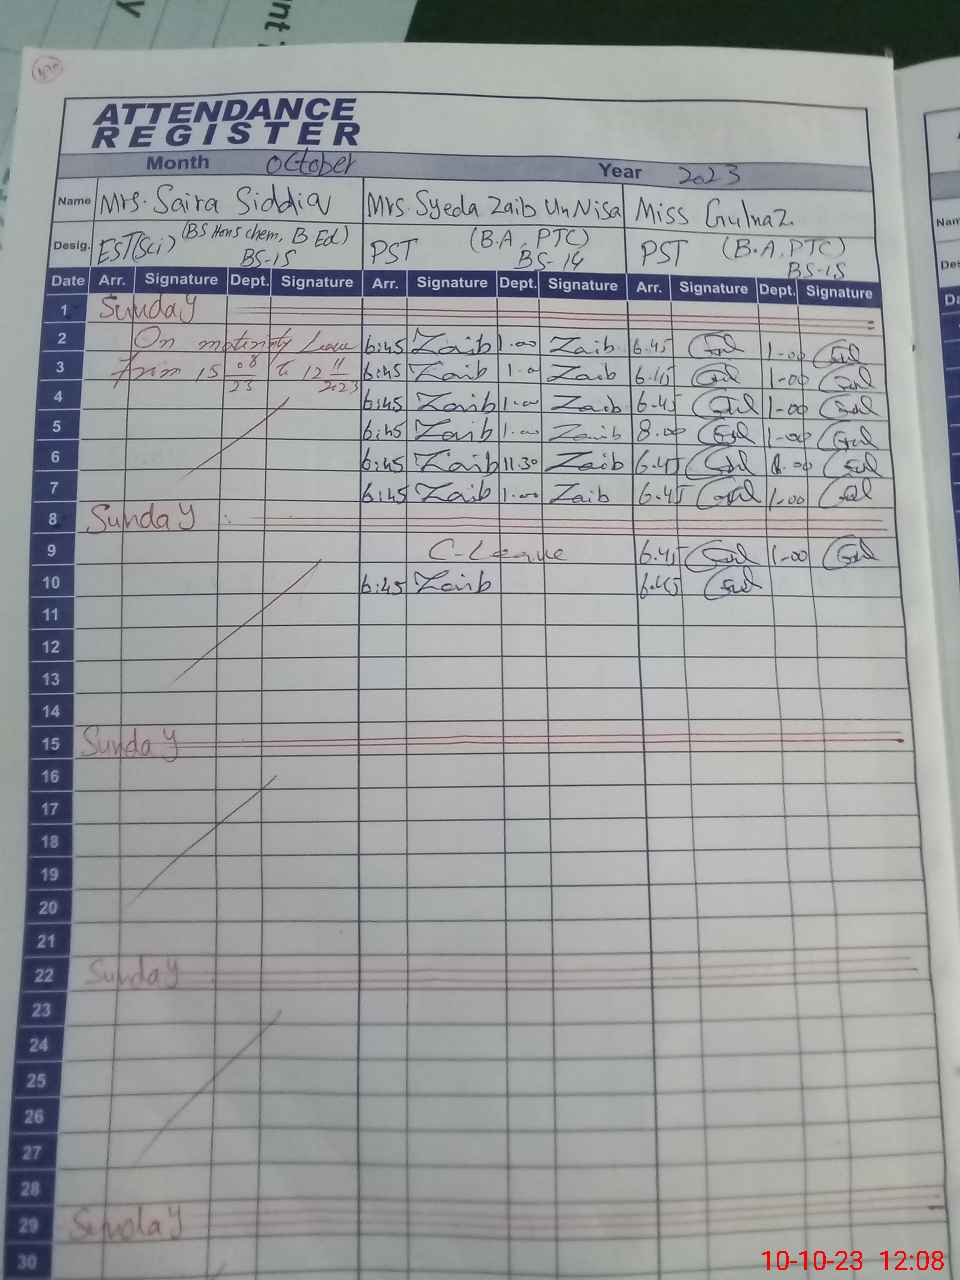 ATTENDANCE
REGISTER
Month October Year 2023
Name Mrs. Saira Siddiq Mrs. Syeda Zaib Un Nisa Miss Gulnaz.
Desig. EST(Sci) (BS Hons chem, B Ed) BS-15 PST (B.A, PTC) BS-14 PST (B.A, PTC) BS-15
Date Arr. Signature Dept. Signature Arr. Signature Dept. Signature Arr. Signature Dept. Signature
1 Sunday
2 On Leave 6:45 Zaib 1.00 Zaib 6.45 Gul 1-00 Gul
3 From 15 08 23 to 12 11 2023 6:45 Zaib 1.0 Zaib 6.45 Gul 1-00 Gul
4 6:45 Zaib 1.00 Zaib 6.45 Gul 1-00 Gul
5 6:45 Zaib 1.00 Zaib 8.00 Gul 1-00 Gul
6 6:45 Zaib 11.30 Zaib 6.45 Gul Gul
7 6:45 Zaib 1.00 Zaib 6.45 Gul 1-00 Gul
8 Sunday
9 C-Leave 6.45 Gul 1-00 Gul
10 6:45 Zaib 6.45 Gul
11
12
13
14
15 Sunday
16
17
18
19
20
21
22 Sunday
23
24
25
26
27
28
29 Sunday
30
10-10-23 12:08